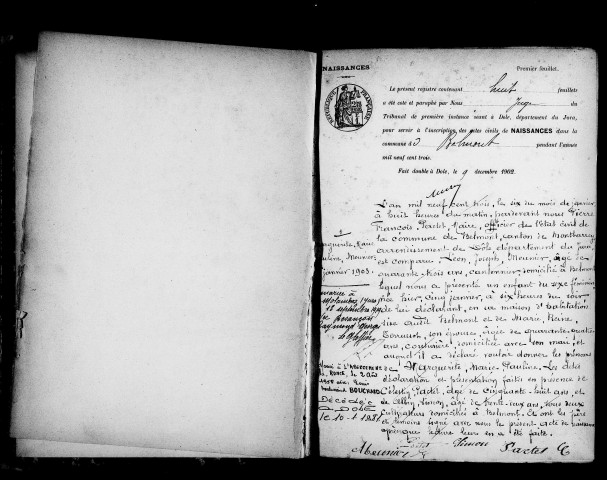 NAISSANCES
Premier feuillet.
Le présent registre contenant huit feuillets
a été coté et paraphé par Nous Juge du
Tribunal de première instance séant à Dole, département du Jura,
pour servir à l'inscription des actes civils de NAISSANCES dans la
commune d Belmont pendant l'année
mil neuf cent trois.
Fait double à Dole, le 9 décembre 1902.
RÉPUBLIQUE FRANÇAISE
L'an mil neuf cent trois, le six du mois de janvier
à huit heures du matin, pardevant nous Pierre
François, Pactet, Maire, officier de l'Etat civil de
la commune de Belmont, canton de Montbarrey
arrondissement de Dôle département du Jura,
est comparu Léon, Joseph, Meunier, âgé de
quarante trois ans, cantonnier, domicilié à Belmont
lequel nous a présenté un enfant du sexe féminin
née hier, cinq janvier, à six heures du soir
de lui déclarant, en sa maison d'habitation
sise audit Belmont et de Marie, Reine
son épouse, âgée de quarante-quatre
ans, couturière, domiciliée avec son mari, et
auquel il a déclaré vouloir donner les prénoms
de Marguerite, Marie, Pauline. Les dites
déclaration et présentation faites en présence de
Célestin, Pactet, âgé de cinquante-huit ans, et
de Albin, Simon, âgé de trente-deux ans, tous deux
cultivateurs domiciliés à Belmont. Et ont le père
et témoins signé avec nous le présent acte de naissance
après que lecture leur en a été faite.
Meunier Pactet Simon Pactet
Marguerite, Marie
Pauline, Meunier
janvier 1903.
mariée à
18 septembre
Besançon
Raymond Georges
1958 avec Louis
BOUCHARD
Décédée
à DOLE
le 10-1-1981